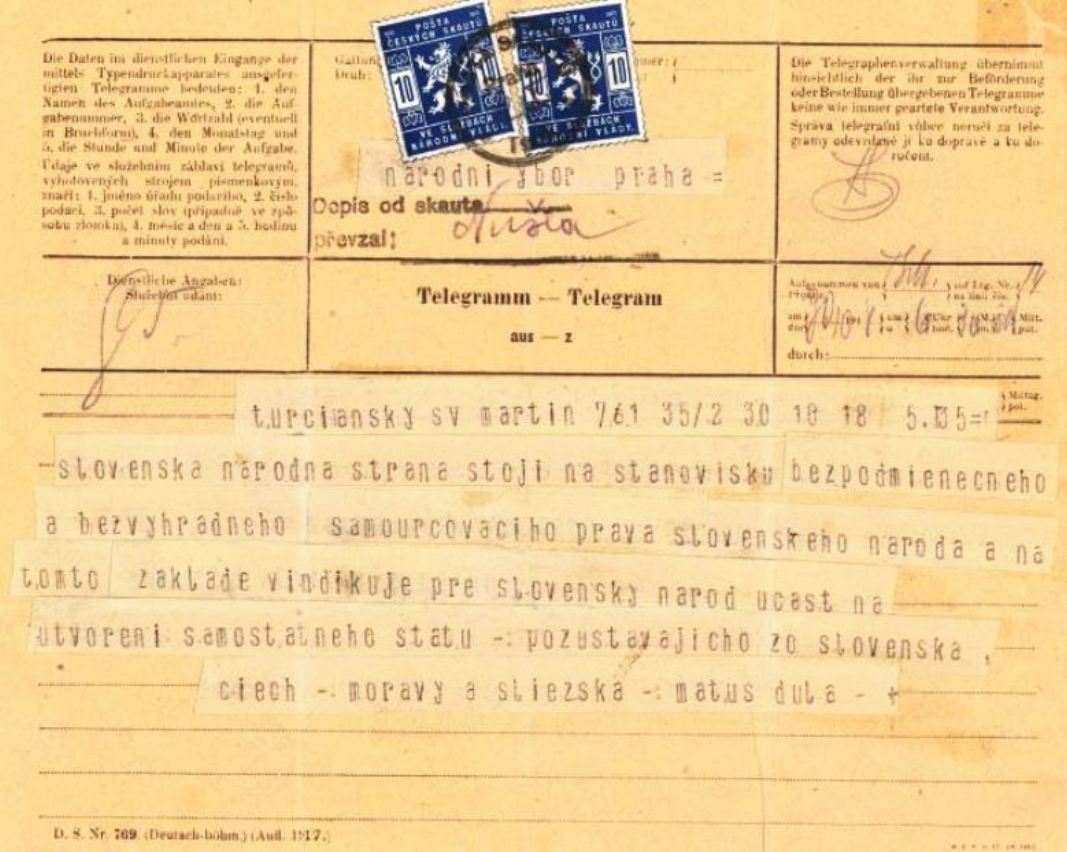 Die Daten im dienstlichen Eingange der
mittels Typendruckapparates ausgefer-
tigten Telegramme bedeuten: 1. den
Namen des Aufgabeamtes, 2. die Auf-
gabenummer, 3. die Wortzahl (eventuell
in Bruchform), 4. den Monatstag und
5. die Stunde und Minute der Aufgabe.
Údaje ve služebním záhlaví telegramů,
vyhotovených strojem písmenkovým,
značí: 1. jméno úřadu podacího, 2. číslo
podací, 3. počet slov (případně ve způ-
sobu zlomku), 4. měsíc a den a 5. hodinu
a minuty podání.
POŠTA
ČESKÝCH SKAUTŮ
10 10
VE SLUŽBÁCH
NÁRODNÍ VLÁDY.
POŠTA
ČESKÝCH SKAUTŮ
10
VE SLUŽBÁCH
NÁRODNÍ VLÁDY.
Die Telegraphenverwaltung übernimmt
hinsichtlich der ihr zur Beförderung
oder Bestellung übergebenen Telegramme
keine wie immer geartete Verantwortung.
Správa telegrafní vůbec neručí za tele-
gramy odevzdané jí ku dopravě a ku do-
ručení.
narodni ybor praha =
Dopis od skauta
převzal:
Dienstliche Angaben:
Služební údaní:
Telegramm — Telegram
aus — z
Aufgenommen von auf Ltg. Nr.
durch:
turcianský sv martin 761 35/2 30 10 18 5.35=
slovenska narodna strana stoji na stanovisku bezpodmienecneho
a bezvyhradneho samourcovaciho prava slovenskeho naroda a na
tomto zaklade vindikuje pre slovensky narod ucast na
utvoreni samostatneho statu - pozustavajicho zo slovenska ,
ciech - moravy a sliezska - matus dula - +
D. S. Nr. 769. (Deutsch-böhm.) (Aufl. 1917.)